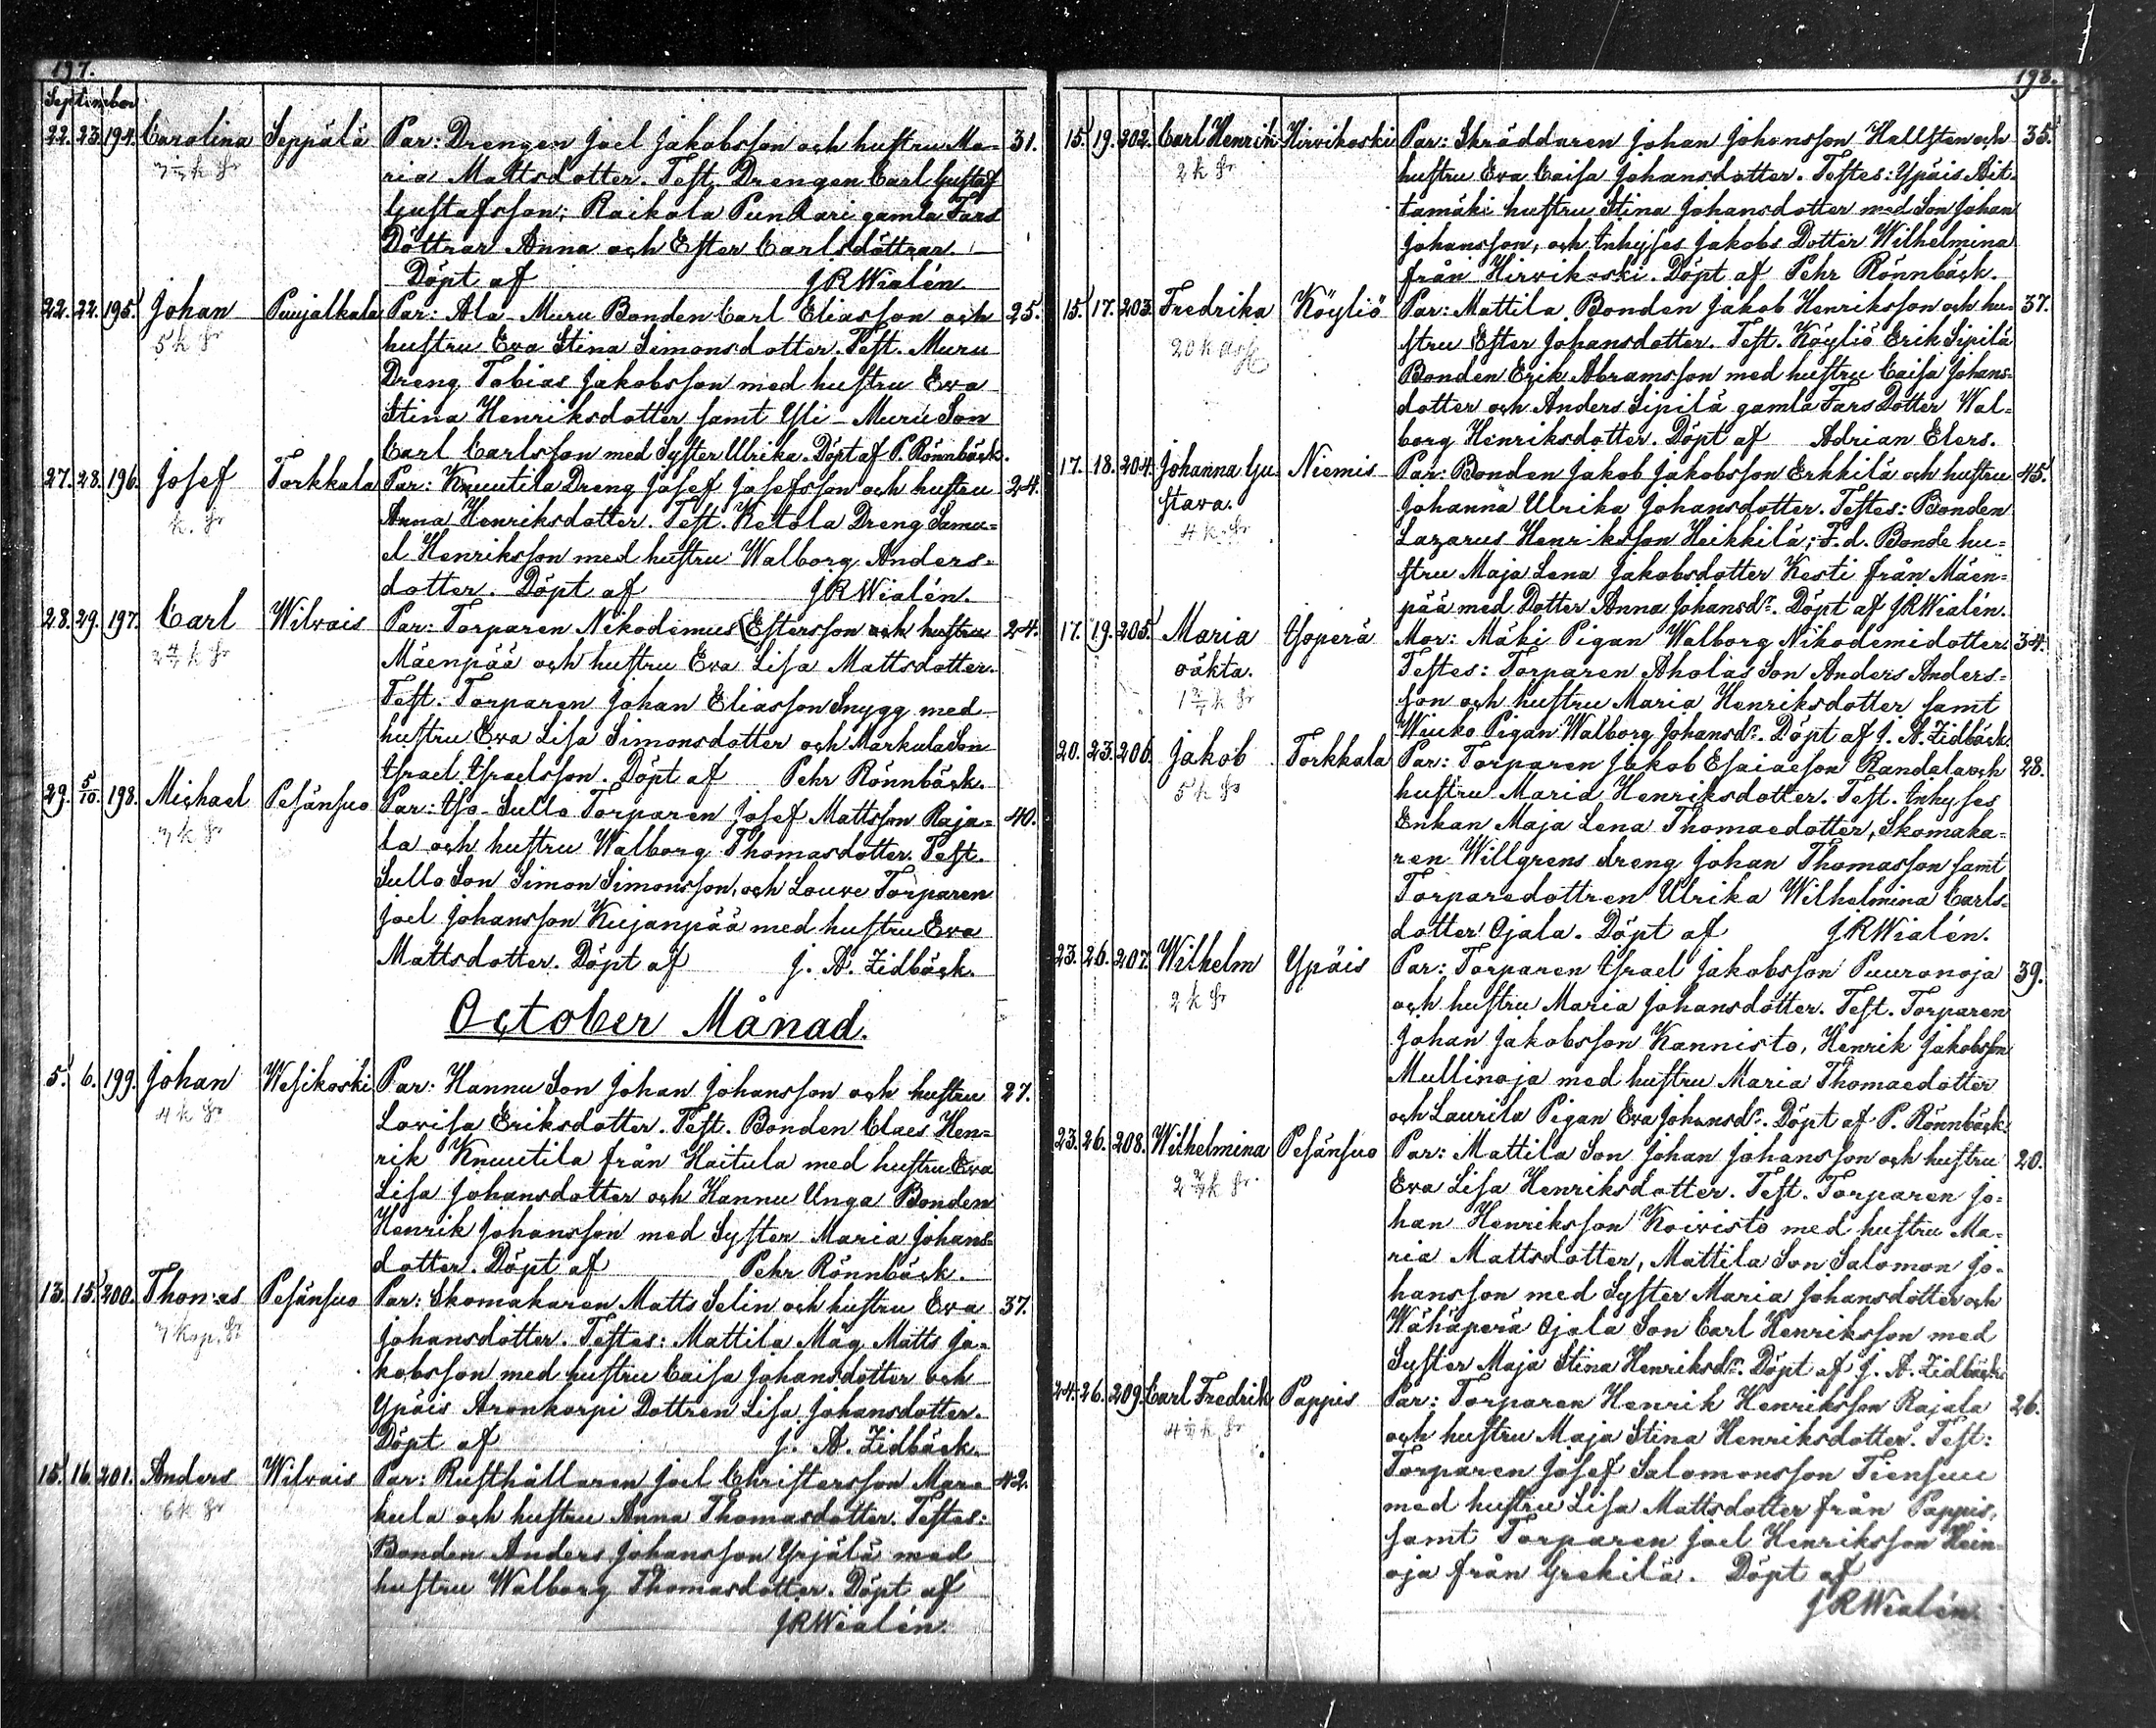 197.
September
22. 23. 194. Carolina Seppälä Par: Drengen Joel Jakobsson och hustru Ma- 31.
ria Mattsdotter. Test. Drengen Carl Gustaf
Gustafsson; Raikola Punkari gamla Fars
Döttrar Anna och Ester Carlsdöttrar.
Döpt af JRWialén.
22. 22. 195. Johan Puujalkala Par: Ala-Muru Bonden Carl Eliasson och 25.
5 k Sr hustru Eva Stina Simonsdotter. Test. Muru
Dreng Tobias Jakobsson med hustru Eva
Stina Henriksdotter samt Yli-Muru Son
Carl Carlsson med Syster Ulrika. Döpt af P. Rönnbäck.
27. 28. 196. Josef Torkkala Par: Knuutila Dreng Josef Josefsson och hustru 24.
k. Sr Anna Henriksdotter. Test. Ketola Dreng Samu-
el Henriksson med hustru Walborg Anders-
dotter. Döpt af JRWialén.
28. 29. 197. Carl Wilvais Par: Torparen Nikodemus Estersson och hustru 24.
Mäenpää och hustru Eva Lisa Mattsdotter.
Test. Torparen Johan Eliasson Snygg med
hustru Eva Lisa Simonsdotter och Markula Son
Israel Israelsson. Döpt af Pehr Rönnbäck.
29. 5/10. 198. Michael Pesänsuo Par: Iso-Sullo Torparen Josef Mattsson Raja- 40.
3 k Sr la och hustru Walborg Thomasdotter. Test.
Sullo Son Simon Simonsson, och Louve Torparen
Joel Johansson Kujanpää med hustru Eva
Mattsdotter. Döpt af J. A. Zidbäck.
October Månad.
5. 6. 199. Johan Wesikoski Par: Hannu Son Johan Johansson och hustru 27.
4 k Sr Lovisa Eriksdotter. Test. Bonden Claes Hen-
rik Knuutila från Haitula med hustru Eva
Lisa Johansdotter och Hannu Unga Bonden
Henrik Johansson med Syster Maria Johans-
dotter. Döpt af Pehr Rönnbäck.
13. 15. 200. Thomas Pesänsuo Par: Skomakaren Matts Selin och hustru Eva 37.
3 kop. Sr Johansdotter. Testes: Mattila Måg Matts Ja-
kobsson med hustru Caisa Johansdotter och
Ypäis Aronkorpi Dottren Lisa Johansdotter.
Döpt af J. A. Zidbäck.
15. 16. 201. Anders Wilvais Par: Rusthållaren Joel Christersson Mar- 42.
6 k Sr kula och hustru Anna Thomasdotter. Testes:
Bonden Anders Johansson Yrjälä med
hustru Walborg Thomasdotter. Döpt af
JRWialén.
198.
15. 19. 202. Carl Henrik Hirvikoski Par: Skräddaren Johan Johansson Hallsten och 35.
2 k Sr hustru Eva Caisa Johansdotter. Testes: Ypäis Ait-
tamäki hustru Stina Johansdotter med Son Johan
Johansson, och Inhyses Jakobs Dotter Wilhelmina
från Hirvikoski. Döpt af Pehr Rönnbäck.
15. 17. 203. Fredrika Köyliö Par: Mattila Bonden Jakob Henriksson och hu- 37.
20 k stru Ester Johansdotter. Test. Köyliö Erik Sipilä
Bonden Erik Abramsson med hustru Caisa Johans-
dotter och Anders Sipilä gamla Fars Dotter Wal-
borg Henriksdotter. Döpt af Adrian Elers.
17. 18. 204. Johanna Gu- Niemis Par: Bonden Jakob Jakobsson Erkkilä och hustru 45.
stava. Johanna Ulrika Johansdotter. Testes: Bonden
4 k. Sr Lazarus Henriksson Heikkilä; F.d. Bonde hu-
stru Maja Lena Jakobsdotter Kesti från Mäen-
pää med Dotter Anna Johansdr. Döpt af JRWialén.
17. 19. 205. Maria Isoperä Mor: Mäki Pigan Walborg Nikodemidotter. 34.
oäkta. Testes: Torparen Aholas Son Anders Anders-
son och hustru Maria Henriksdotter samt
Wiuko Pigan Walborg Johansdr. Döpt af J. A. Zidbäck.
20. 23. 206. Jakob Torkkala Par: Torparen Jakob Esaiasson Randela och 28.
5 k Sr hustru Maria Henriksdotter. Test. Inhyses
Enkan Maja Lena Thomasdotter, Skomaka-
ren Willgrens dreng Johan Thomasson samt
Torparedottren Ulrika Wilhelmina Carls-
dotter Ojala. Döpt af JRWialén.
23. 26. 207. Wilhelm Ypäis Par: Torparen Israel Jakobsson Puuronoja 39.
2 k Sr och hustru Maria Johansdotter. Test. Torparen
Johan Jakobsson Kannisto, Henrik Jakobsson
Mullinoja med hustru Maria Thomasdotter
och Laurila Pigan Eva Johansdr. Döpt af P. Rönnbäck.
23. 26. 208. Wilhelmina Pesänsuo Par: Mattila Son Johan Johansson och hustru 20.
Eva Lisa Henriksdotter. Test. Torparen Jo-
han Henriksson Koivisto med hustru Ma-
ria Mattsdotter, Mattila Son Salomon Jo-
hansson med Syster Maria Johansdotter och
Wähäperä Ojala Son Carl Henriksson med
Syster Maja Stina Henriksdr. Döpt af J. A. Zidbäck.
24. 26. 209. Carl Fredrik Pappis Par: Torparen Henrik Henriksson Rajala 26.
och hustru Maja Stina Henriksdotter. Test:
Torparen Josef Salomonsson Tiensuu
med hustru Lisa Mattsdotter från Pappis,
samt Torparen Joel Henriksson Hein-
oja från Yrekilä. Döpt af
JRWialén.